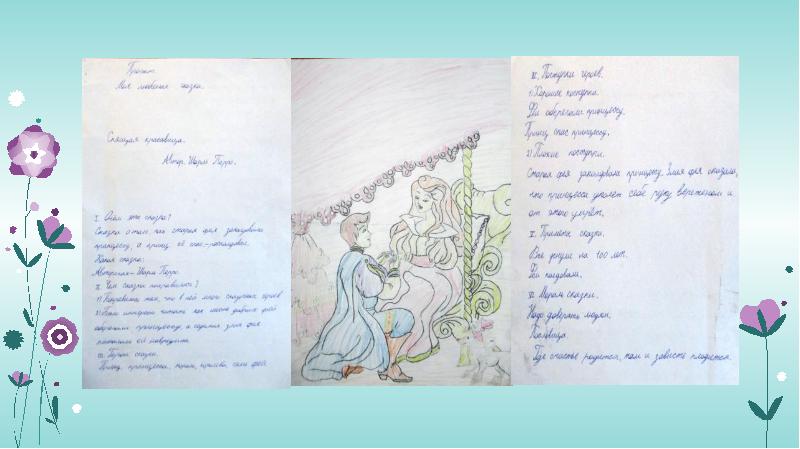 Проект
Моя любимая сказка.
Спящая красавица.
Автор Шарль Перро.
I. О чём эта сказка?
Сказка о том, как старая фея заколдовала
принцессу, а принц её спас-расколдовал.
Какая сказка:
Авторская-Шарль Перро.
II. Чем сказка понравилась?
1) Понравилась тем, что в ней много сказочных героев
2) Было интересно читать как много добрых фей
оберегали принцессу, а одна злая фея
пыталась ей навредить.
III. Герои сказки.
Принц, принцесса, король, королева, семь фей.
IV. Поступки героев.
1) Хорошие поступки.
Феи оберегали принцессу.
Принц спас принцессу.
2) Плохие поступки.
Старая фея заколдовала принцессу. Злая фея сказала,
что принцесса уколет себе руку веретеном и
от этого умрёт.
V. Приметы сказки.
Все уснули на 100 лет.
Феи колдовали.
VI. Мораль сказки.
Надо доверять людям.
Пословица.
Где счастье родится, там и зависть плодится.